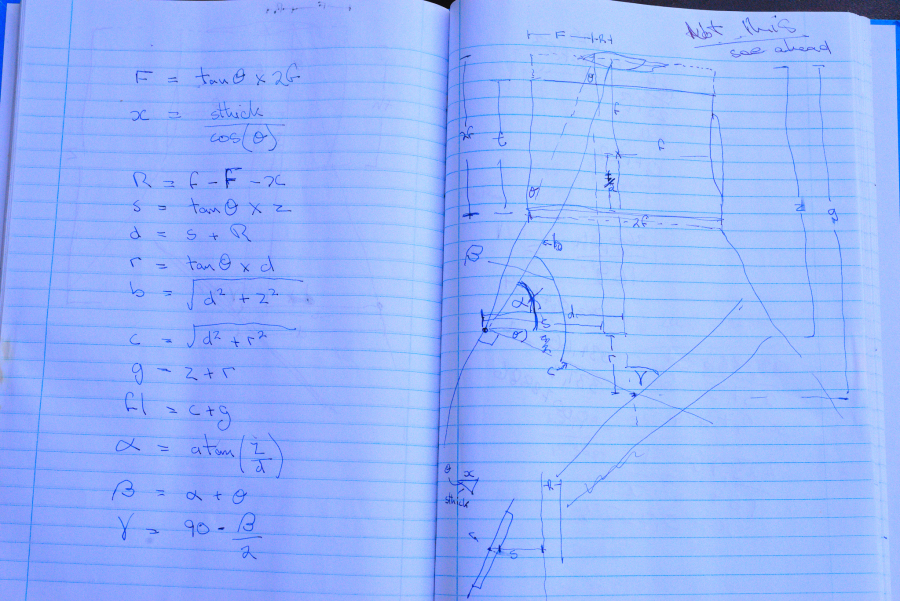 F = tanθ × 2f
x = sthick / cos(θ)
R = f - F - x
s = tanθ × z
d = s + R
r = tanθ × d
b = √(d² + z²)
c = √(d² + r²)
g = z + r
fl = c + g
α = atan(z/d)
β = α + θ
γ = 90 - β/2
Not this
see ahead
F
R
θ
2f
t
f
f
z
g
θ
2f
β
b
α
d
s
θ
c
r
γ
θ
x
sthick
R
s